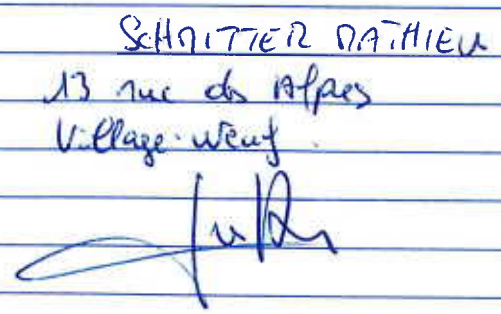 SCHMITTER MATHIEU
13 rue des Alpes
Village-Neuf.